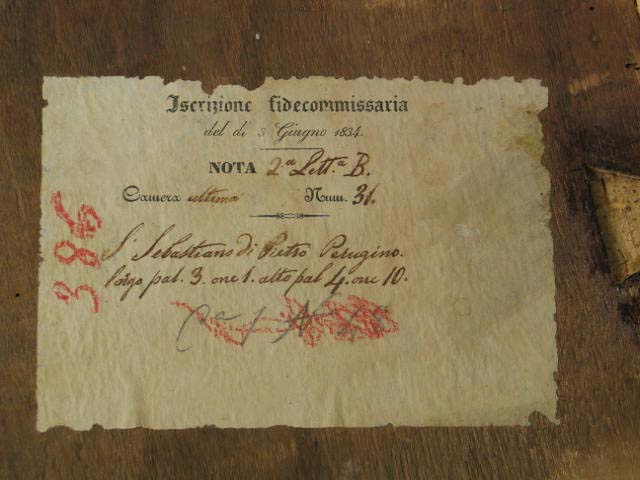 Iscrizione fidecommissaria
del dì 3 Giugno 1834.
NOTA 2ª Lettª B.
Camera ultima Num. 31.
S. Sebastiano di Pietro Perugino.
largo pal. 3. onc 1. alto pal 4. onc 10.
386